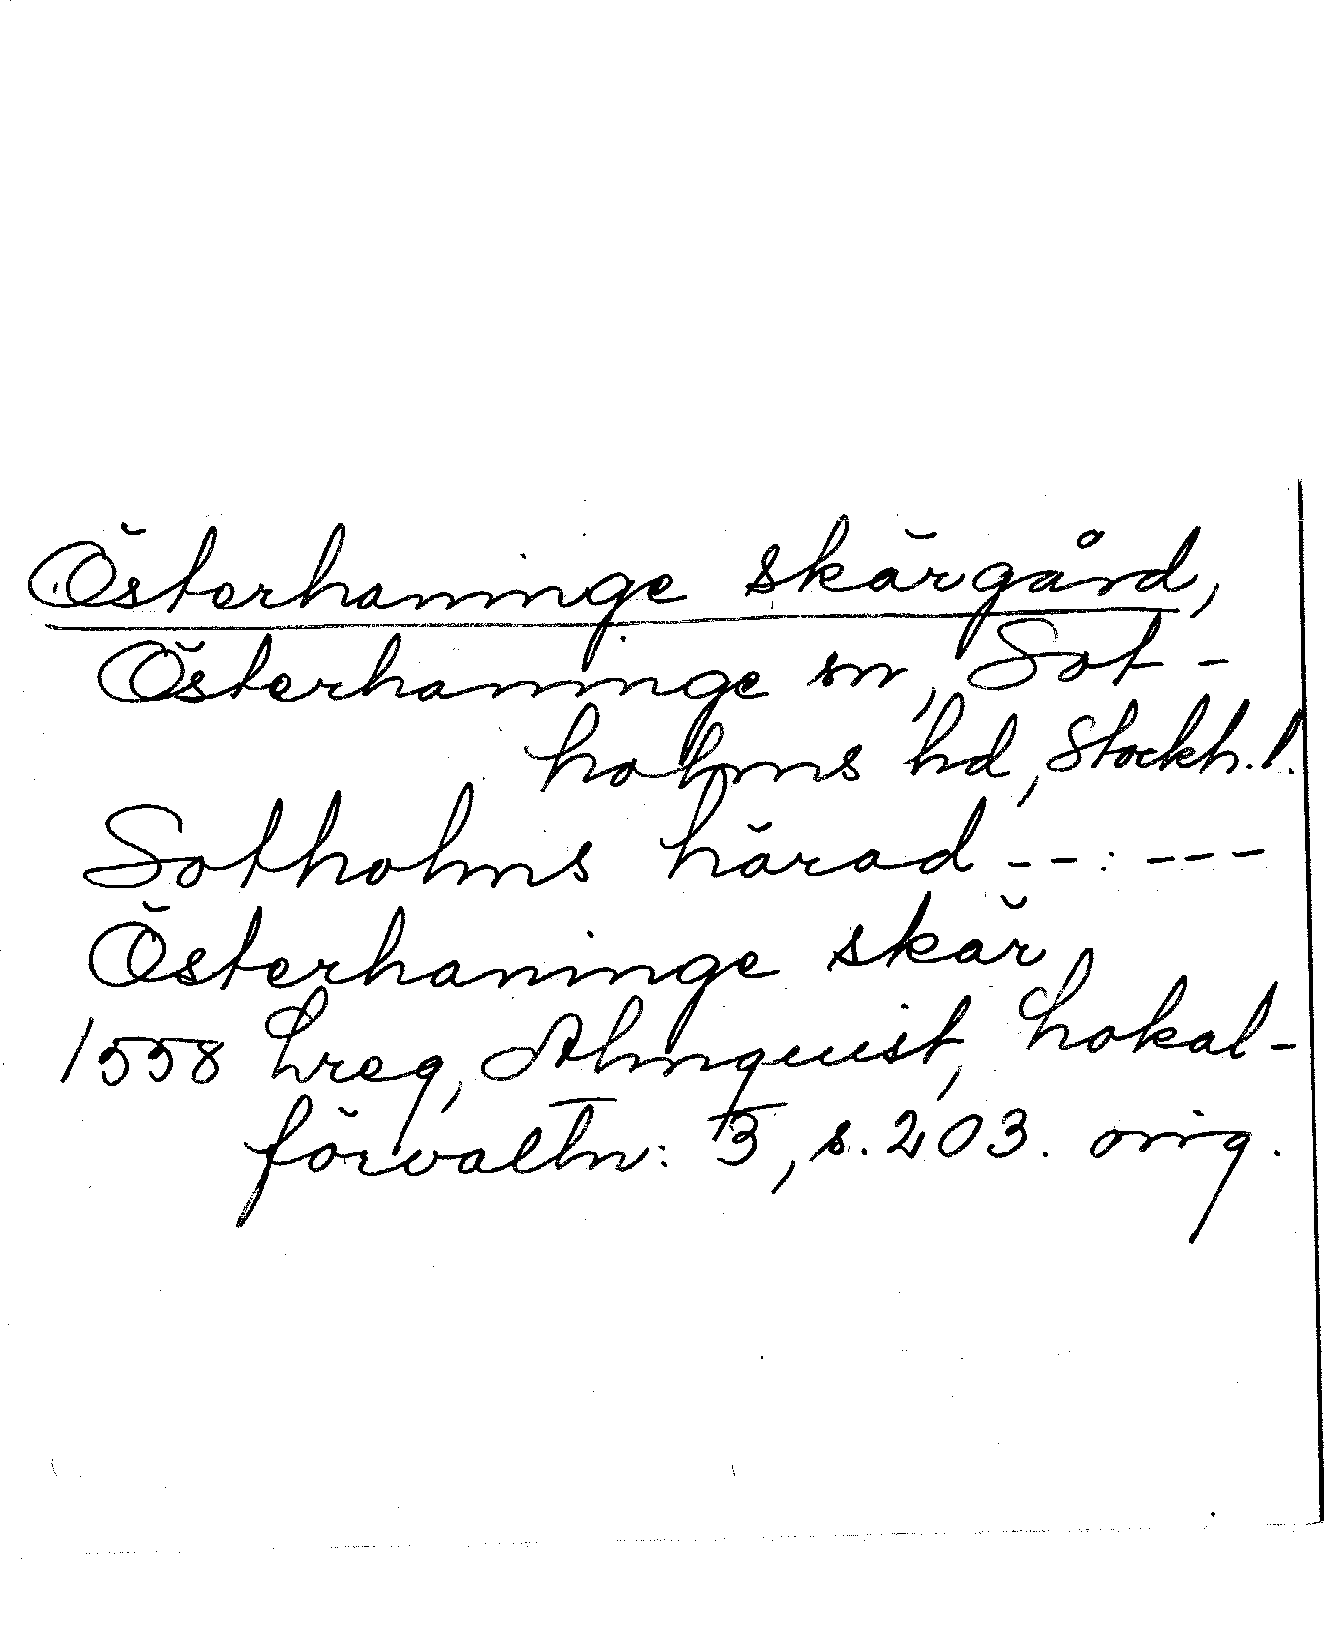 Österhaninge skärgård,
Österhaninge sn, Sot-
holms hd, Stockh. l.
Sotholms härad -- : ---
Österhaninge skär
1558 Lreg, Almquist, Lokal-
förvaltn: 3, s. 203. orig.